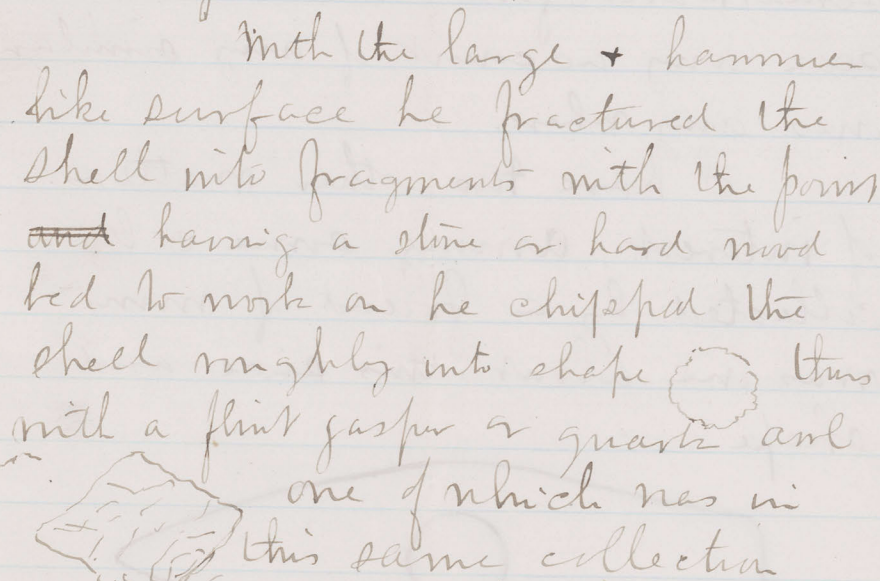 With the large + hammer
like surface he fractured the
shell into fragments with the point
and having a stone or hard wood
bed to work on he chipped the
shell roughly into shape thus
with a flint gasper or quartz awl
one of which was in
this same collection